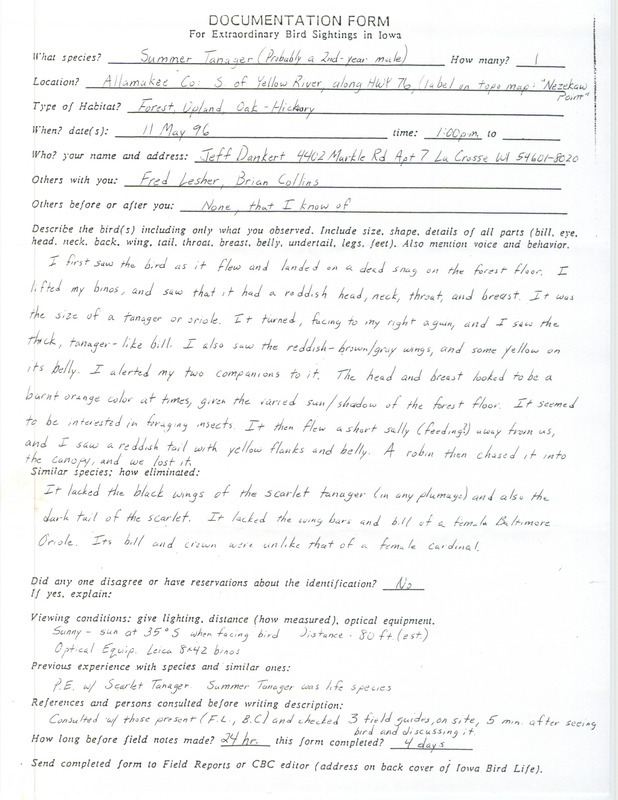 DOCUMENTATION FORM
For Extraordinary Bird Sightings in Iowa
What species? Summer Tanager (Probably a 2nd-year male) How many? 1
Location? Allamakee Co: S. of Yellow River, along HWY 76, (label on topo map: "Nezekaw
Point"
Type of Habitat? Forest, Upland Oak-Hickory
When? date(s): 11 May 96 time: 1:00pm to
Who? your name and address: Jeff Dankert 4402 Markle Rd Apt 7 La Crosse WI 54601-8020
Others with you: Fred Lesher, Brian Collins
Others before or after you: None, that I know of
Describe the bird(s) including only what you observed. Include size, shape, details of all parts (bill, eye,
head, neck, back, wing, tail, throat, breast, belly, undertail, legs, feet). Also mention voice and behavior.
I first saw the bird as it flew and landed on a dead snag on the forest floor. I
lifted my binos, and saw that it had a reddish head, neck, throat, and breast. It was
the size of a tanager or oriole. It turned, facing to my right again, and I saw the
thick, tanager-like bill. I also saw the reddish-brown/gray wings, and some yellow on
its belly. I alerted my two companions to it. The head and breast looked to be a
burnt orange color at times, given the varied sun/shadow of the forest floor. It seemed
to be interested in foraging insects. It then flew a short sally (feeding?) away from us,
and I saw a reddish tail with yellow flanks and belly. A robin then chased it into
the canopy, and we lost it.
Similar species; how eliminated:
It lacked the black wings of the scarlet tanager (in any plumage) and also the
dark tail of the scarlet. It lacked the wing bars and bill of a female Baltimore
Oriole. Its bill and crown were unlike that of a female cardinal.
Did any one disagree or have reservations about the identification? No
If yes, explain:
Viewing conditions: give lighting, distance (how measured), optical equipment.
Sunny - sun at 35° S when facing bird Distance - 80 ft. (est.)
Optical Equip. Leica 8x42 binos
Previous experience with species and similar ones:
P.E. w/ Scarlet Tanager Summer Tanager was life species
References and persons consulted before writing description:
Consulted w/ those present (F.L., B.C) and checked 3 field guides, on site, 5 min. after seeing
bird and discussing it.
How long before field notes made? 24 hr. this form completed? 4 days
Send completed form to Field Reports or CBC editor (address on back cover of Iowa Bird Life).